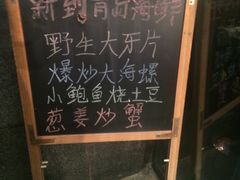 新到青岛海鲜
野生大牙片
爆炒大海螺
小鲍鱼烧土豆
葱姜炒蟹